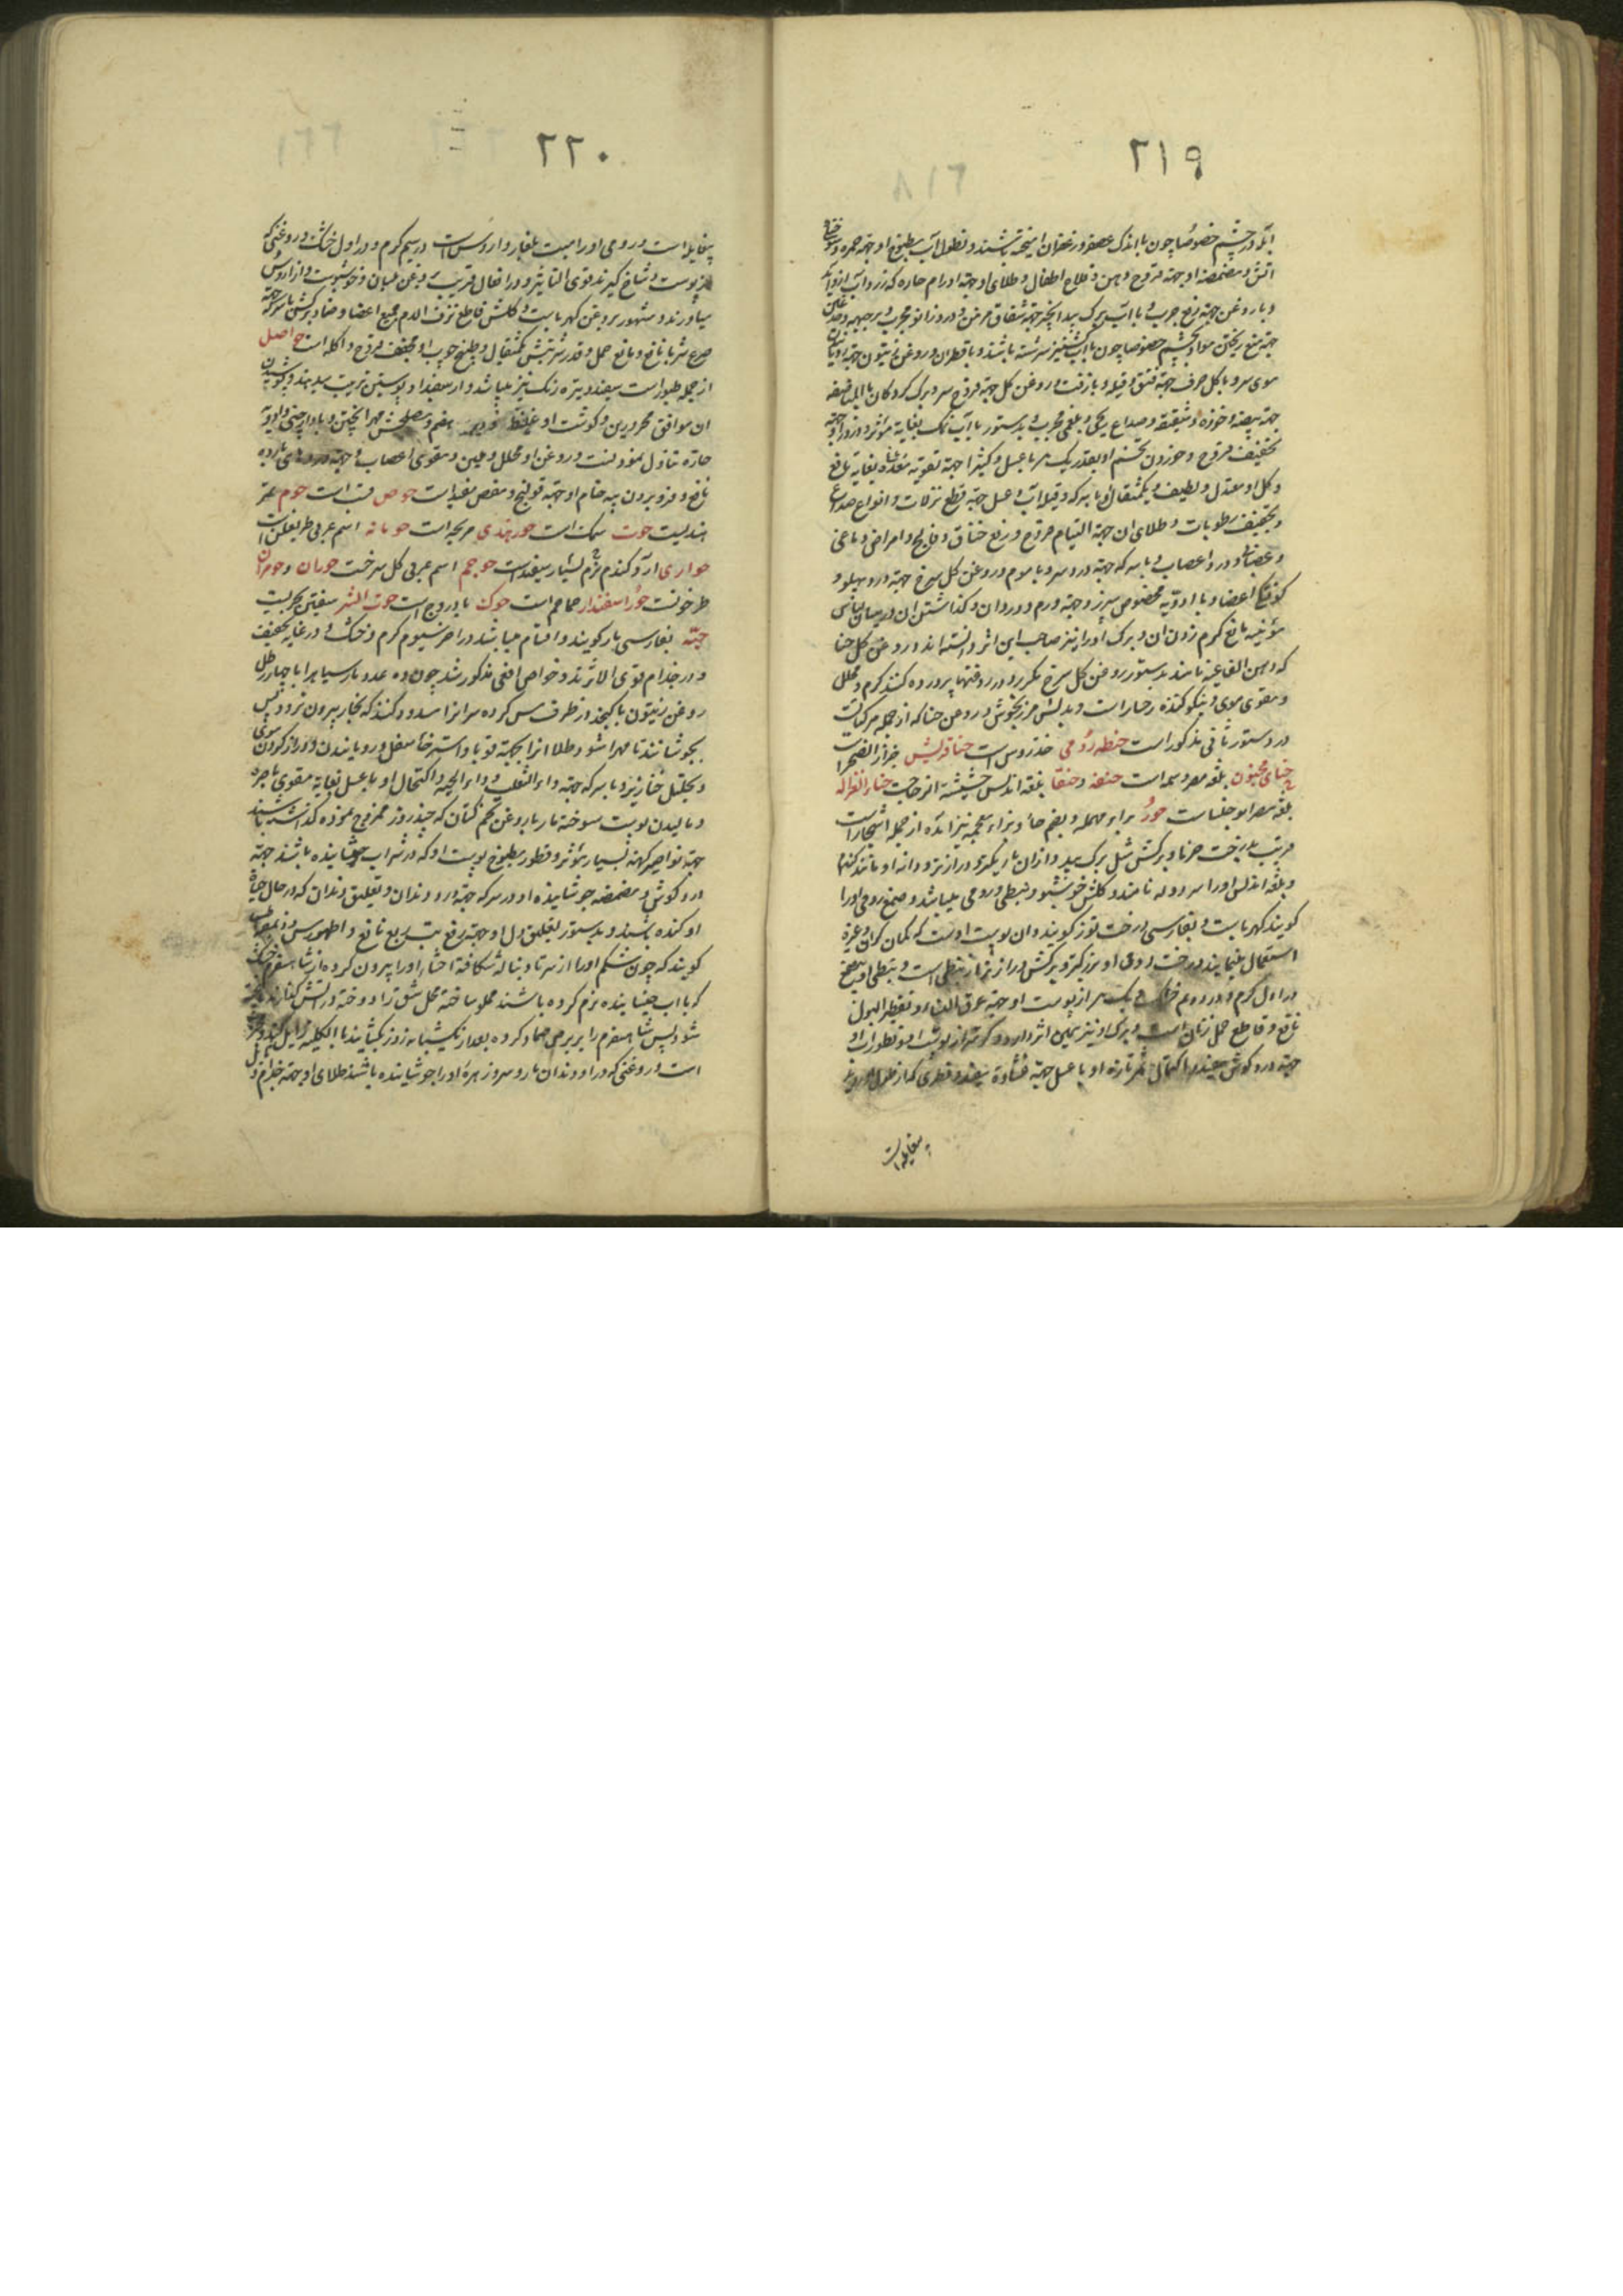 ۲۱۹
آبله در چشم خصوصا چون با اندک عصفر و زعفران آمیخته باشند و نطول آب مطبوخ او جهة حمره و سوختگی
آتش و مضمضه او جهة قروح دهن و قلاع اطفال و طلای او جهة اورام حاره که زرداب از او آید
و با روغن جهة رفع جرب و با آب برگ بید انجیر جهة شقاق مزمن و درد زانو مجرب و بر جبهه و صدغین
جهة منع ریختن مواد بچشم خصوصا چون با آب گشنیز سرشته باشند و با قطران و روغن زیتون جهة
موی سر و با گل صرف جهة فتق و قیله و با زفت و روغن گل جهة قروح سر و برگ گردکان بالمناصفه
جهة بیضه و خوذه و شقیقه و صداع ریحی و بلغمی مجرب و بدستور با آب نمک بغایة مؤثر و ذرور او جهة
تخفیف قروح و خوردن تخم او بقدر یک درهم با عسل و کثیرا جهة تقویة دماغ بغایة نافع
و گل او معتدل و لطیف و یکمثقال او با سه وقیه آب و عسل جهة قطع نزلات و انواع صداع
و تجفیف رطوبات و طلای آن جهة التیام قروح و رفع خناق و فالج و امراض دماغی
و عضاو درد اعصاب و با سرکه جهة درد سر و با موم و روغن گل سرخ جهة درد پهلو و
کوفتگی اعضا و با ادویه مخصوصه سپرز و جهة ورم و درد آن و گذاشتن آن در میان لباس
مؤینه مانع کرم زدن آن و برگ او را نیز صاحب این اثر دانسته اند و روغن گل حنا
که دهن الفاغیه نامند بدستور روغن گل سرخ مکرر در روغنها پرورده کنند گرم و محلل
و مقوی موی و نیکو کننده رخسار است و بدلش مرزنجوش و روغن حنا که از جمله مرکبات
در دستور ثانی مذکور است حنطه رومی خندروس است حنا قریش حزاز الصخر است
حنای مجنون بلغه مصر وسمه است حنفه و حنقا بلغه اندلس حشیشة الزجاج است حناء الغزاله
بلغه مصر ابوحلسا است حور براء مهمله و بضم حا و بزاء معجمه نیز آمده از جمله اشجار است
قریب بدرخت خرما و برگش مثل برگ بید و از آن باریکتر و درازتر و دانه او مانند گندم
و بلغه اندلس او را سر دوله نامند و گلش خوشبو و نبطی و رومی میباشد و صمغ رومی او را
گویند کهرباست و بفارسی درخت توز گویند و آن پوست اوست که کمان گران و غیره
استعمال مینمایند و درخت رومی او بزرگتر و برگش درازتر از نبطی است و نبطی او بی صمغ
در اول گرم و در دوم خشک و یک درهم از پوست او جهة عرق النساء و تقطیر البول
نافع و قاطع حمل زنان است و برگ او نیز همین اثر دارد و
جهة درد گوش مفید و اکتحال ثمر تازه او با عسل جهة غشاوه مفید و
بیخایله است
۲۲۰
بیخایله است و رومی او را میست بلغار و اردوس است در سیم گرم و در اول خشک و روغنی که
از پوست و شاخ گیرند قوی التاثیر و در افعال قریب بروغن بلسان و خوشبوست و از اروس
میآورند و مشهور بروغن کهرباست و گلش قاطع نزف الدم جمیع اعضا و ضماد برگش با سرکه جهة
صرع شربا نافع و مانع حمل و قدر شربتش یکمثقال و طبیخ چوب او مجفف قروح و آکله است حواصل
از جمله طیور است سفید و تیره رنگ نیز میباشد و از سفید او پوستین ترتیب میدهند و پوشیدن
آن موافق محرورین و گوشت او غلیظ و دیر هضم و مصلحش مهرا پختن و با دارچینی و ادویه
حاره تناول نمودنست و روغن او محلل و ملین و مقوی اعصاب و جهة دردهای بارده
نافع و فرو بردن پیه خام او جهة قولنج و مغص مفید است حوص قت است حوم تمر
هندیست حوت سمک است حور هندی مریجه است حومانه اسم عربی طریفلن است
حواری آرد گندم نرم بسیار سفید است حوجم اسم عربی گل سرخست حوران و حومران
طرخونست حوراسفندار حماحم است حوک بادروج است حوت البشر سقنقر بحریست
حیّه بفارسی مار گویند و اقسام میباشد در آخر سیوم گرم و خشک و در غایة تجفیف
و در جذام قوی الاثر تر و خواص افعی مذکور شد چون ده عدد مار سیاه را با چهار رطل
روغن زیتون یا کنجد در ظرف مس کرده سر آنرا مسدود کنند که بخار بیرون نرود پس
بجوشانند تا مهرا شود طلاء آنرا بجهة قوبا و استرخاء مفاصل و رویانیدن و دراز کردن موی
و تحلیل خنازیر و با سرکه جهة داء الثعلب و داء الحیه و اکتحال او با عسل بغایة مقوی باصره
و مالیدن پوست سوخته مار با روغن تخم کتان که چند روز ممزوج نموده گذاشته باشند
جهة نواصیر کهنه بسیار مؤثر و قطور مطبوخ پوست او که در شراب جوشانیده باشند جهة
درد گوش و مضمضه جوشانیده او در سرکه جهة درد دندان و تعلیق دندان که در حال حیاة
او کنده باشند و بدستور تعلیق دل او جهة رفع تب ربع نافع و
گویند که چون شکم او را از سر تا دنباله شکافته احشاء او را بیرون کرده از شاهسفرم خشک
که با آب خیسانیده نرم کرده باشند مملو ساخته محل شق را دوخته در آتش گذارند تا پخته
شود پس شاهسفرم را بر برص ضماد کرده بعد از یکشبانه روز بگشایند بالکلیه زایل کننده برص
است و روغنی که در او دندان مار و سر و زهره او را جوشانیده باشند طلای او جهة جذام و